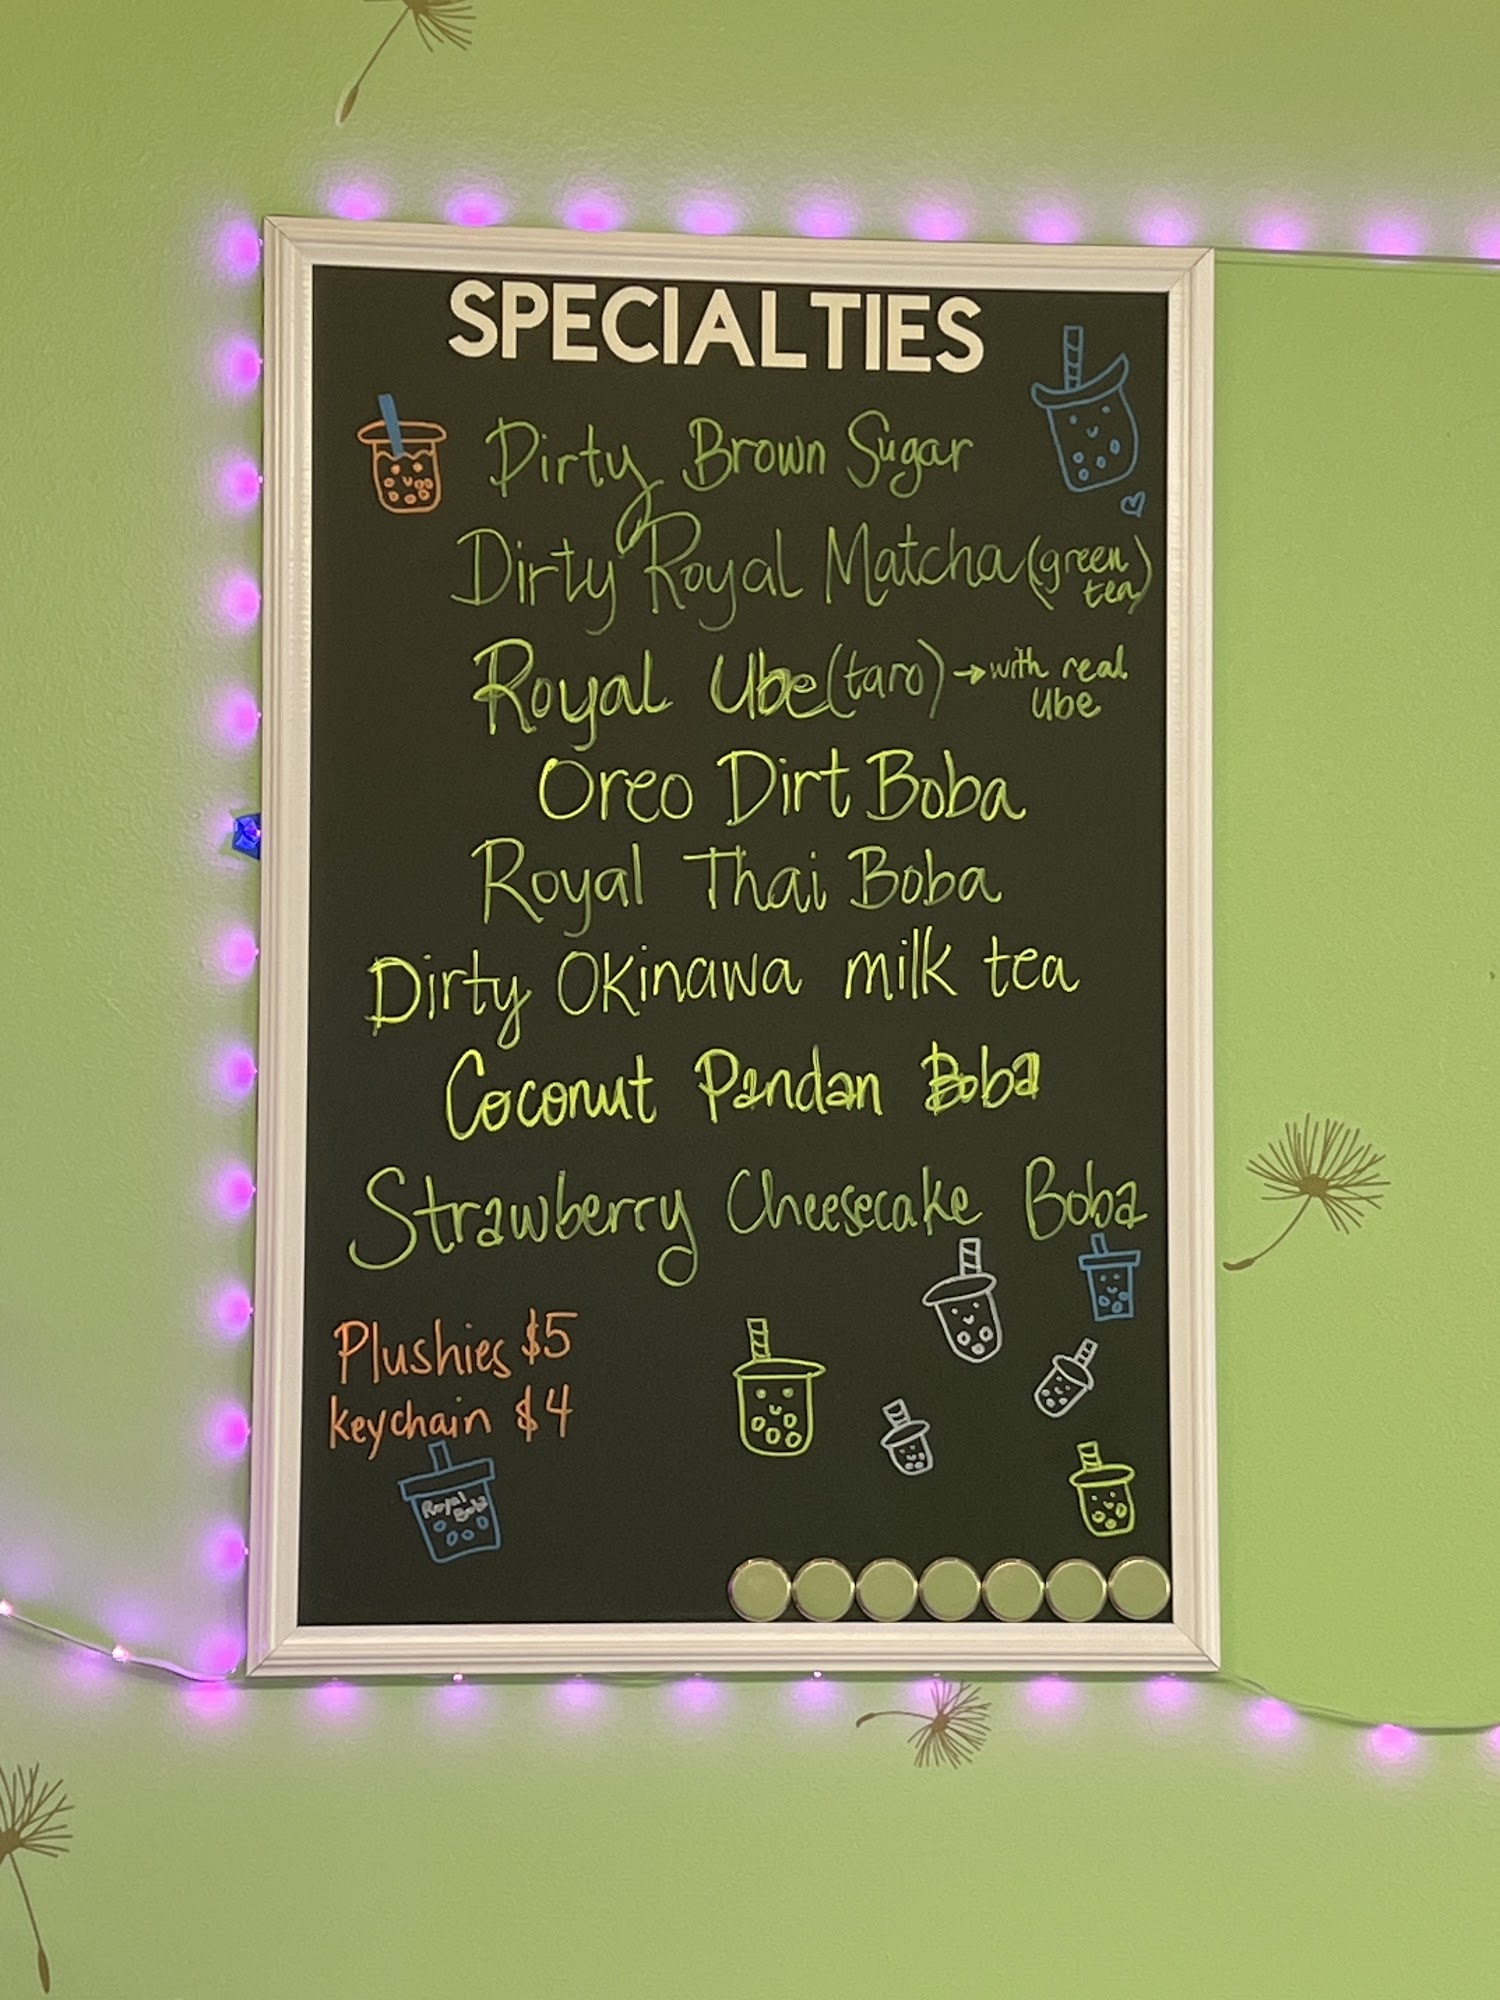 SPECIALTIES
Dirty Brown Sugar
Dirty Royal Matcha (green
tea)
Royal Ube (taro) → with real
Ube
Oreo Dirt Boba
Royal Thai Boba
Dirty Okinawa milk tea
Coconut Pandan Boba
Strawberry Cheesecake Boba
Plushies $5
keychain $4
Royal
Boba